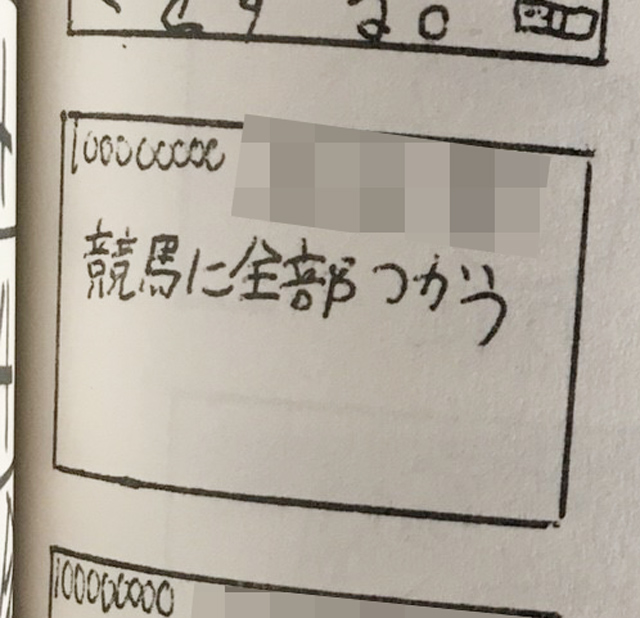 20
100000000
競馬に全部つかう
100000000